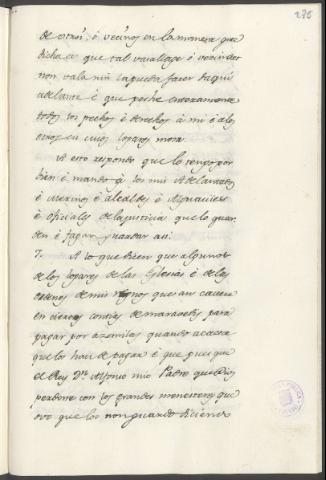 276
de otros, ó vecinos en la manera que
dicha es que tal vasallage é vecindat
non vala nin la pueda facer daqui
adelante é que peche enteramente
todos los pechos é derechos à mi é á los
otros en cuios logares mora
A esto respondo que lo tengo por
bien é mando à los mis Adelantados
é Merinos é alcaldes é Alguaciles
é oficiales de la justicia que lo guar
den é fagan guardar asi
7. A lo que dicen que algunos
de los logares de las Iglesias é de las
ordenes de mis regnos que an
en ciertas contias de maravedis para
pagar por azemilas quando acaesce
que los han de pagar é que pues que
el Rey Dn. Alfonso mio Padre que Dios
perdone con los grandes menesteres que
ovo que los non guardo diciendo